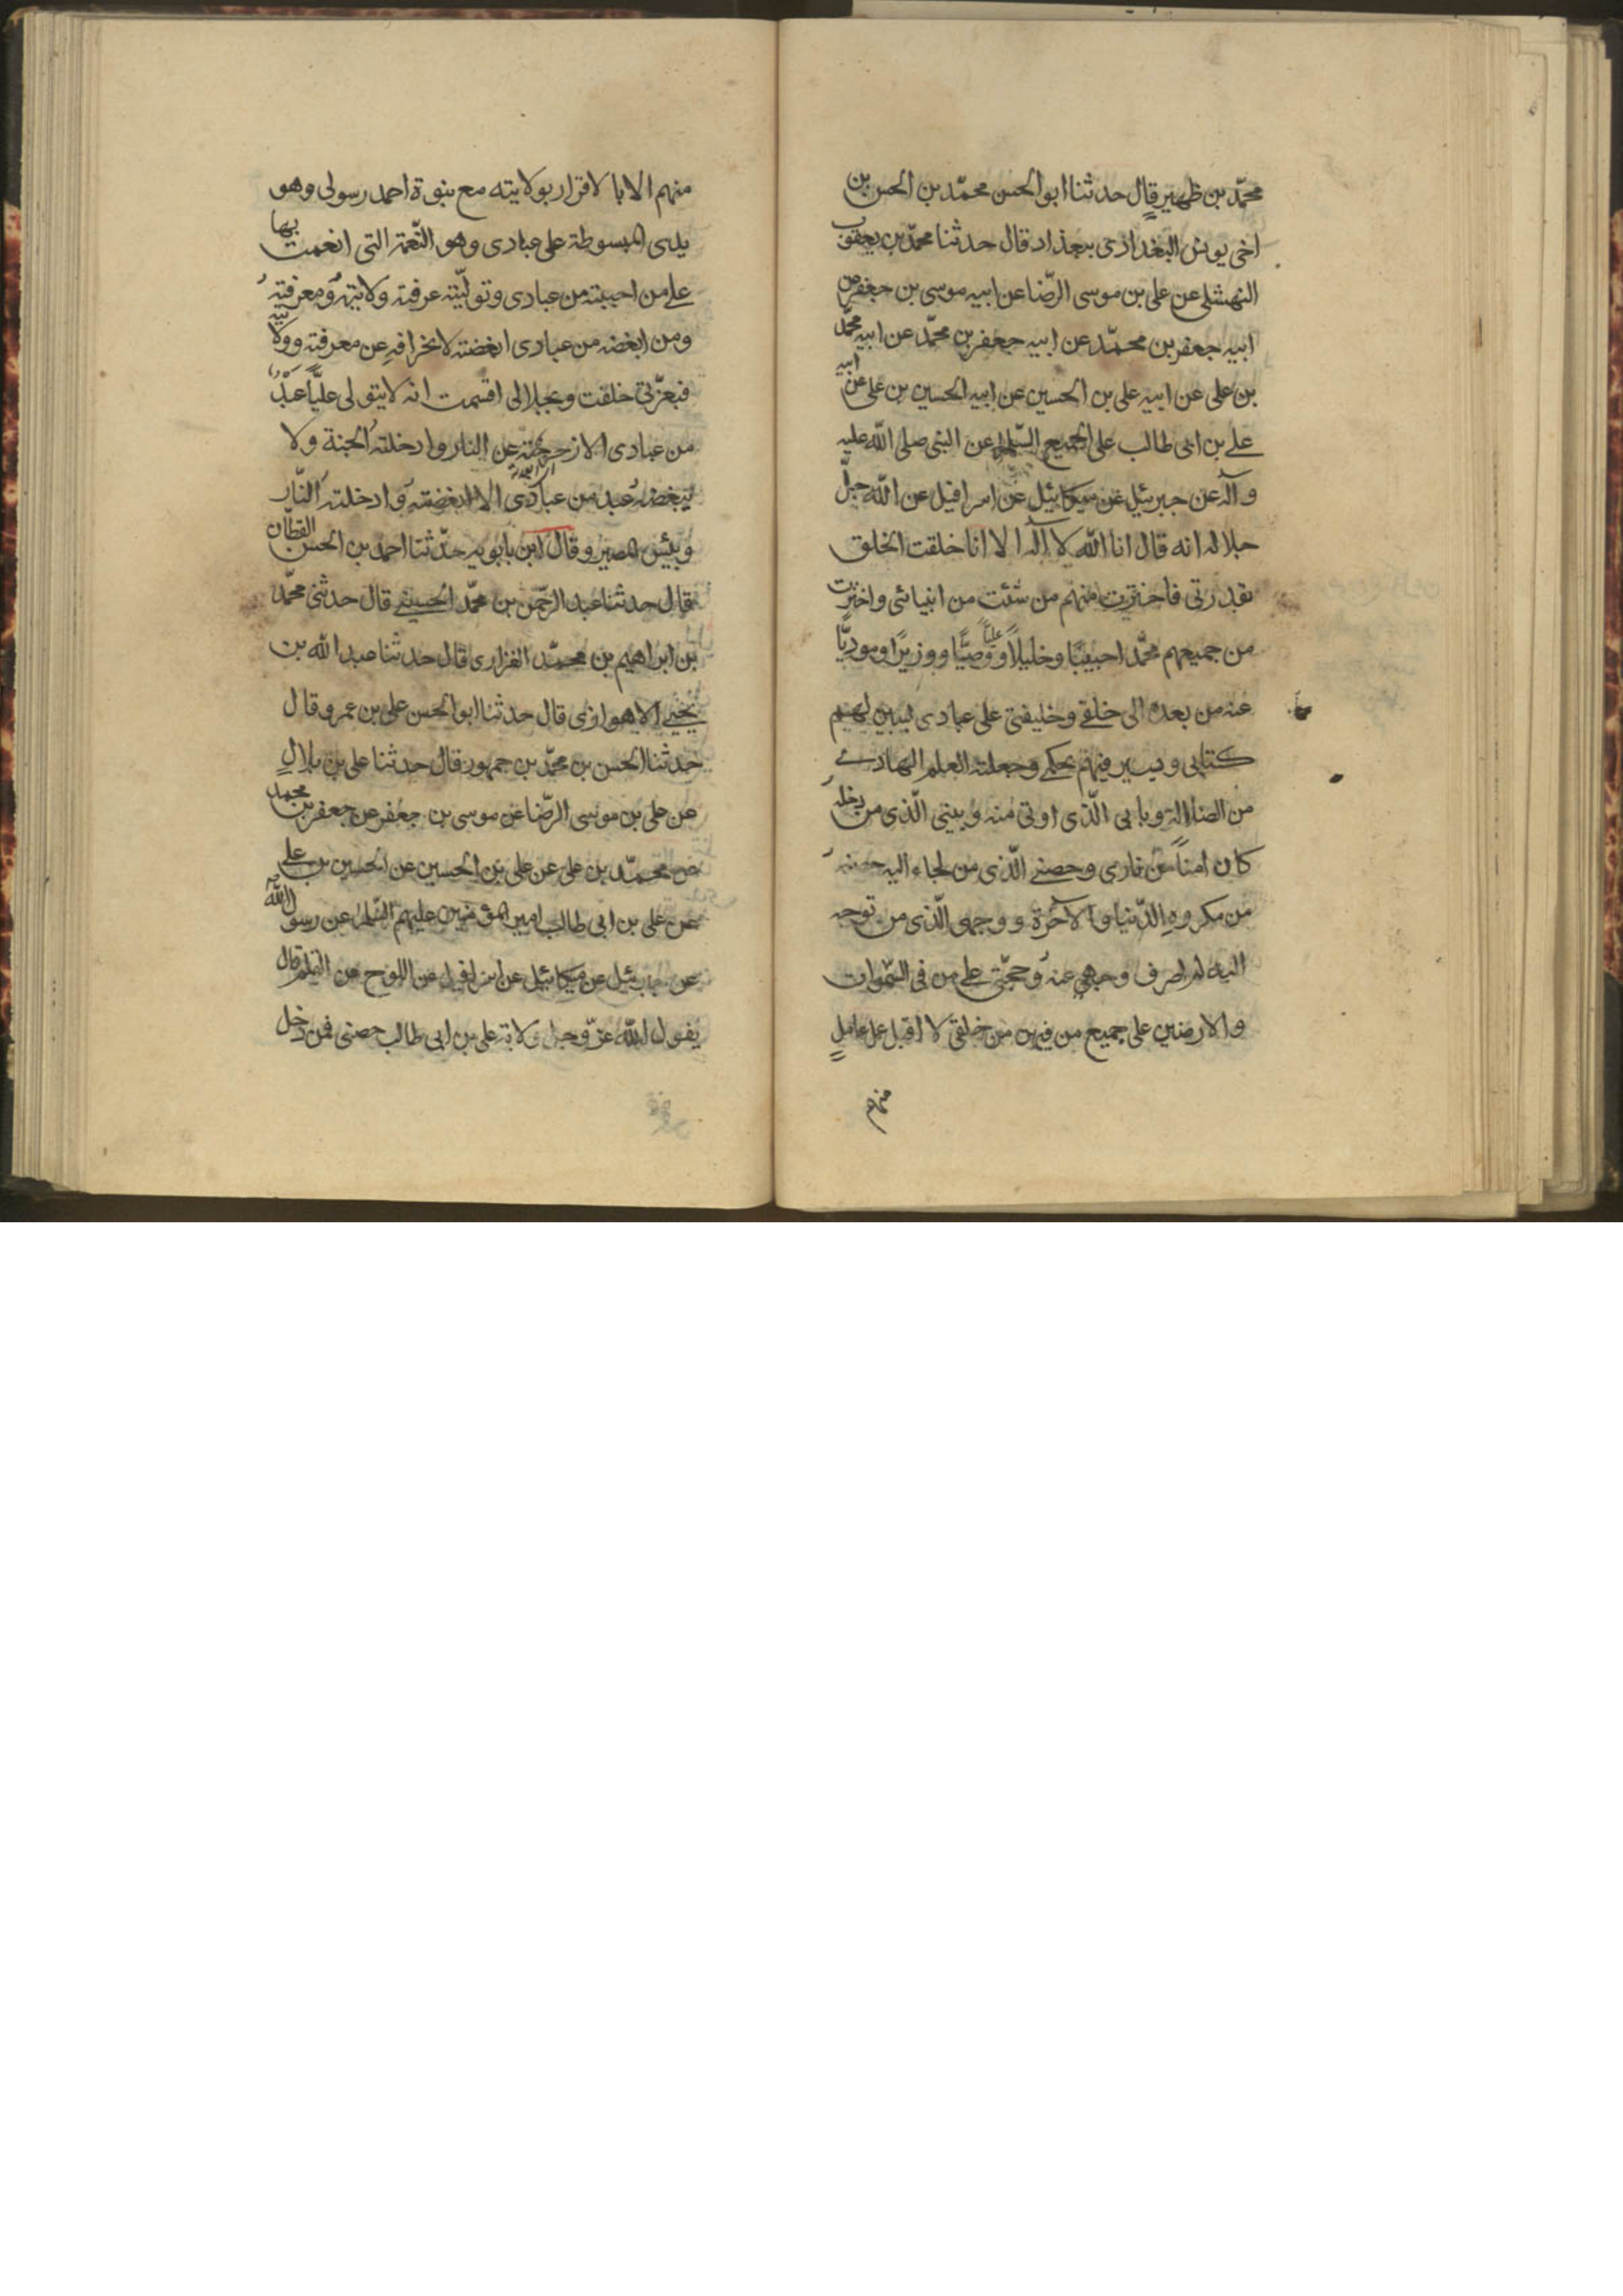 محمّد بن ظهير قال حدثنا ابوالحسن محمّد بن الحسن بن
اخى يونس البغدادى ببغداد قال حدثنا محمّد بن يعقوب
النهشلى عن على بن موسى الرّضا عن ابيه موسى بن جعفر عن
ابيه جعفر بن محمّد عن ابيه جعفر بن محمّد عن ابيه محمّد
بن على عن ابيه على بن الحسين عن ابيه الحسين بن على عن ابيه
على بن ابى طالب على الجميع السّلم عن النبى صلى اللّه عليه
وآله عن جبرئيل عن ميكائيل عن اسرافيل عن اللّه جلّ
جلاله انه قال انا اللّه لا آله الا انا خلقت الخلق
بقدرتى فاخترت منهم من شئت من انبيائى واخترت
من جميعهم محمّدا حبيبًا وخليلاً وعليًّا وصيًّا ووزيرًا ومودیًّا
عنه من بعده الى خلقى وخليفتى على عبادى ليبين لهم
كتابى ويسير فيهم بحكمى وجعلته العلم الهادى
من الضلالة وبابى الّذى اوتى منه وبيتى الّذى من دخله
كان امنًا من نارى وحصنى الّذى من لجاء اليه حصنه
من مكروه الدّنيا والآخرة ووجهى الّذى من توجه
اليه لم اصرف وجهى عنه وحجّتى على من فى السّموات
والارضين على جميع من فيهن من خلقى لا اقبل عمل عامل
منهم
منهم الا بالاقرار بولايته مع نبوة احمد رسولى وهو
يدى المبسوطة على عبادى وهو النّعمة التى انعمت بها
على من احببته من عبادى وتولّيته عرفته ولايته ومعرفته
ومن ابغضه من عبادى ابغضته لانحرافه عن معرفته وولايته
فبعزّتى خلقت وبجلالى اقسمت انه لا يتولى عليًّا عبد
من عبادى الا زحزحته عن النار وادخلته الجنة ولا
يبغضه عبد من عبادى الا ابغضته وادخلته النّار
وبئس المصير وقال ابن بابويه حدّثنا احمد بن الحسن القطّان
قال حدثنا عبد الرّحمن بن محمّد الحسينى قال حدثنى محمّد
بن ابراهيم بن محمّد الفزارى قال حدثنا عبد اللّه بن
يحيى الاهوازى قال حدثنا ابوالحسن على بن عمرو قال
حدثنا الحسن بن محمّد بن جمهور قال حدثنا على بن بلال
عن على بن موسى الرّضا عن موسى بن جعفر عن جعفر بن محمد
عن محمّد بن على عن على بن الحسين عن الحسين بن على
عن على بن ابى طالب امير المؤمنين عليهم السّلم عن رسول اللّه
عن جبرئيل عن ميكائيل عن اسرافيل عن اللوح عن القلم قال
يقول اللّه عزّ وجل ولاية على بن ابى طالب حصنى فمن دخل